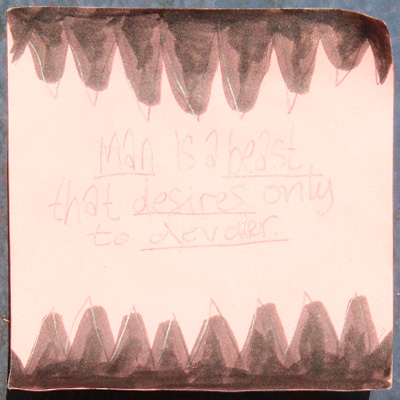 Man is a beast
that desires only
to devour.